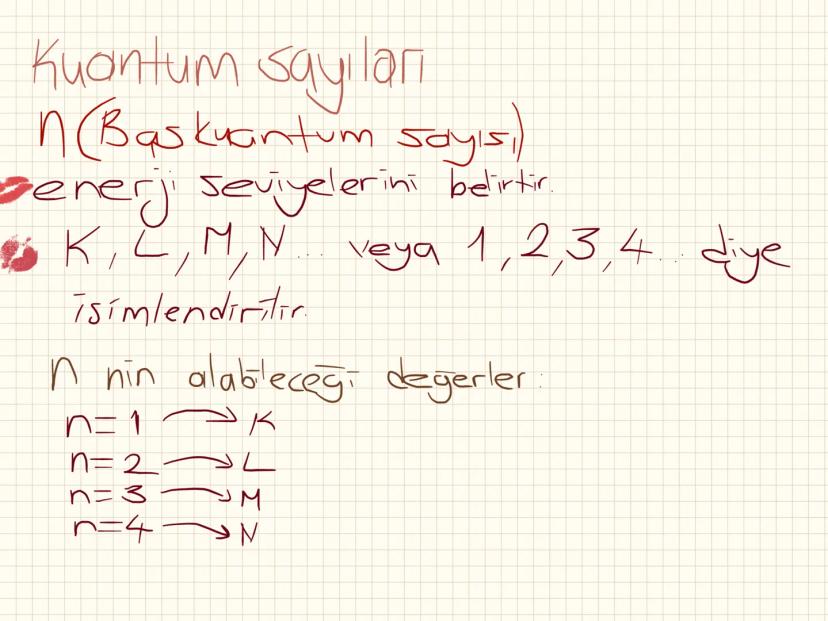 Kuantum sayıları
n (Başkuantum sayısı)
enerji seviyelerini belirtir.
K, L, M, N... veya 1, 2, 3, 4... diye
isimlendirilir.
n nin alabileceği değerler:
n=1 → K
n=2 → L
n=3 → M
n=4 → N